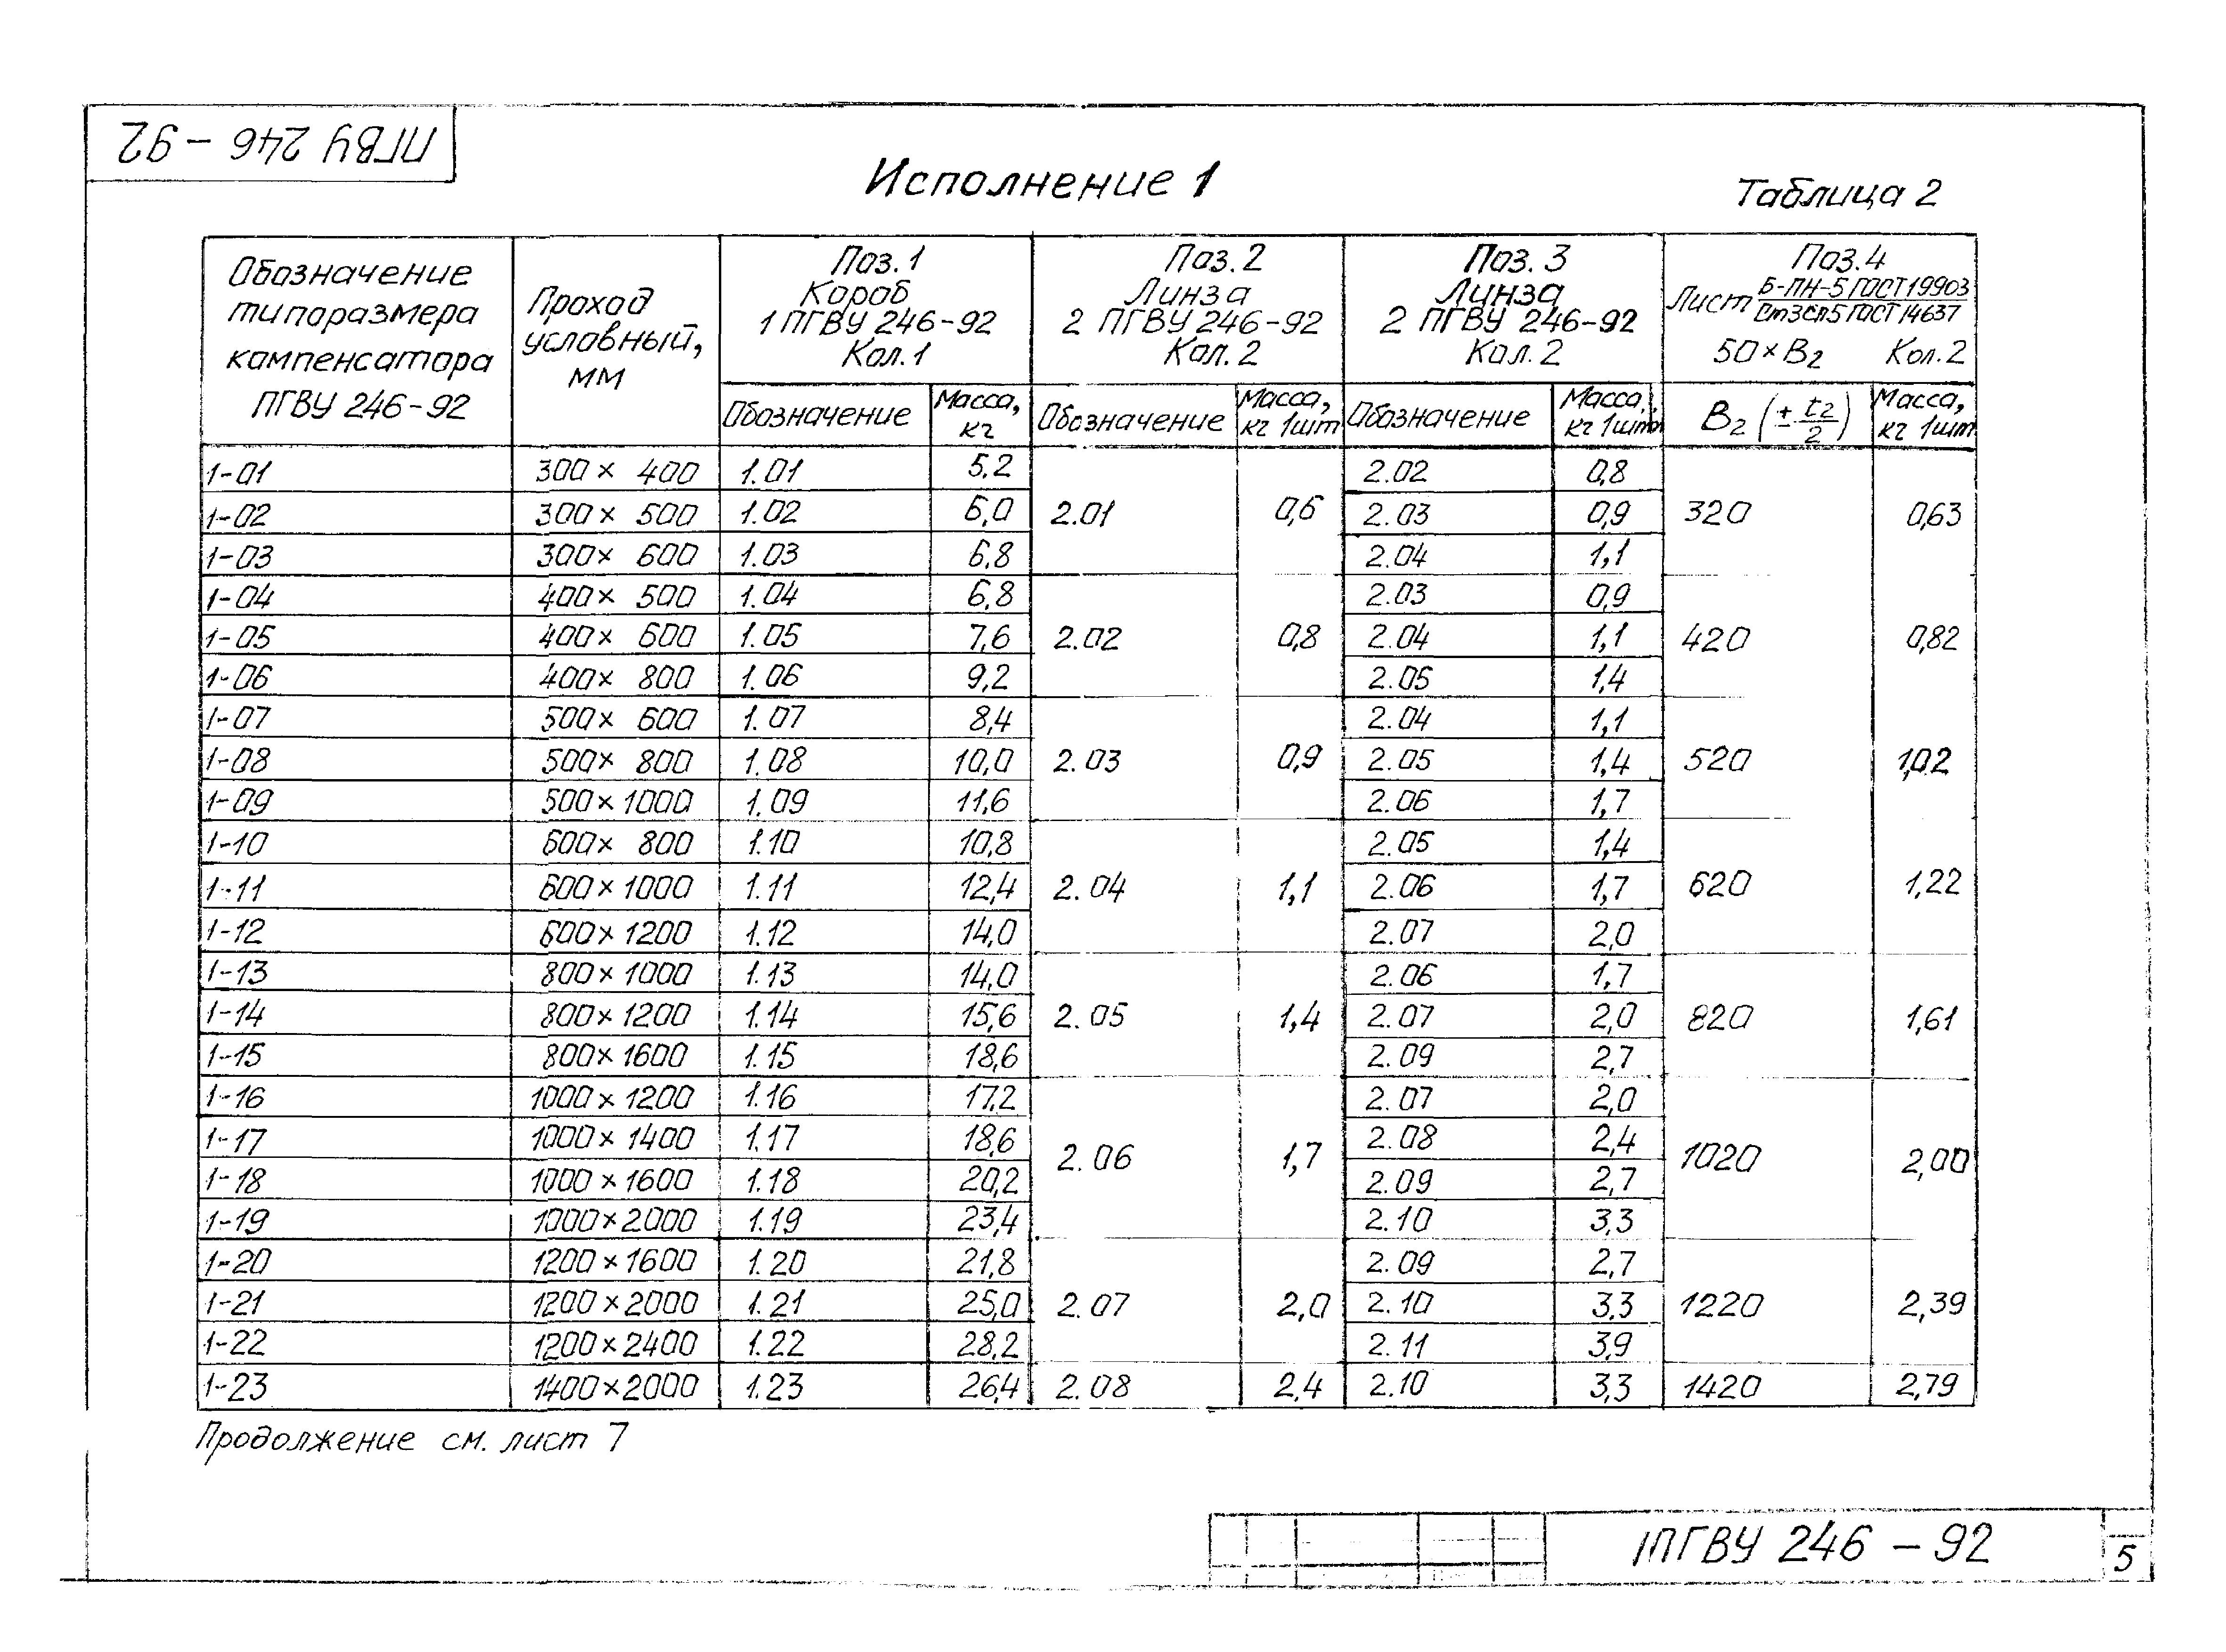 ПГВУ 246-92
Исполнение 1
Таблица 2
Обозначение типоразмера компенсатора ПГВУ 246-92
Проход условный, мм
Поз. 1 Короб 1 ПГВУ 246-92 Кол. 1
Поз. 2 Линза 2 ПГВУ 246-92 Кол. 2
Поз. 3 Линза 2 ПГВУ 246-92 Кол. 2
Поз. 4 Лист Б-ПН-5 ГОСТ 19903 / Ст3сп5 ГОСТ 14637 50×В2 Кол. 2
Обозначение Масса, кг Обозначение Масса, кг 1шт Обозначение Масса, кг 1шт В2 (± t2/2) Масса, кг 1шт
1-01 300×400 1.01 5,2 2.02 0,8
1-02 300×500 1.02 6,0 2.01 0,6 2.03 0,9 320 0,63
1-03 300×600 1.03 6,8 2.04 1,1
1-04 400×500 1.04 6,8 2.03 0,9
1-05 400×600 1.05 7,6 2.02 0,8 2.04 1,1 420 0,82
1-06 400×800 1.06 9,2 2.05 1,4
1-07 500×600 1.07 8,4 2.04 1,1
1-08 500×800 1.08 10,0 2.03 0,9 2.05 1,4 520 1,02
1-09 500×1000 1.09 11,6 2.06 1,7
1-10 600×800 1.10 10,8 2.05 1,4
1-11 600×1000 1.11 12,4 2.04 1,1 2.06 1,7 620 1,22
1-12 600×1200 1.12 14,0 2.07 2,0
1-13 800×1000 1.13 14,0 2.06 1,7
1-14 800×1200 1.14 15,6 2.05 1,4 2.07 2,0 820 1,61
1-15 800×1600 1.15 18,6 2.09 2,7
1-16 1000×1200 1.16 17,2 2.07 2,0
1-17 1000×1400 1.17 18,6 2.06 1,7 2.08 2,4 1020 2,00
1-18 1000×1600 1.18 20,2 2.09 2,7
1-19 1000×2000 1.19 23,4 2.10 3,3
1-20 1200×1600 1.20 21,8 2.09 2,7
1-21 1200×2000 1.21 25,0 2.07 2,0 2.10 3,3 1220 2,39
1-22 1200×2400 1.22 28,2 2.11 3,9
1-23 1400×2000 1.23 26,4 2.08 2,4 2.10 3,3 1420 2,79
Продолжение см. лист 7
ПГВУ 246-92
5